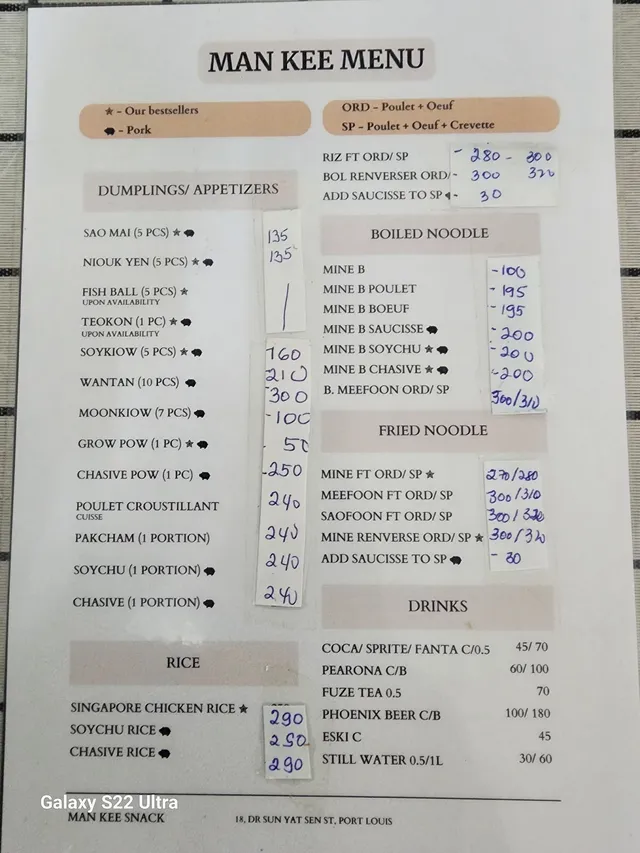 MAN KEE MENU
★ - Our bestsellers
- Pork
ORD - Poulet + Oeuf
SP - Poulet + Oeuf + Crevette
RIZ FT ORD/ SP - 280 - 300
BOL RENVERSER ORD/- 300 320
ADD SAUCISSE TO SP - 30
DUMPLINGS/ APPETIZERS
SAO MAI (5 PCS) ★ 135
NIOUK YEN (5 PCS) ★ 135
FISH BALL (5 PCS) ★
UPON AVAILABILITY
TEOKON (1 PC) ★
UPON AVAILABILITY
SOYKIOW (5 PCS) ★ 160
WANTAN (10 PCS) 210
MOONKIOW (7 PCS) 300
GROW POW (1 PC) ★ -100
CHASIVE POW (1 PC) 50
POULET CROUSTILLANT -250
CUISSE
PAKCHAM (1 PORTION) 240
SOYCHU (1 PORTION) 240
CHASIVE (1 PORTION) 240
240
RICE
SINGAPORE CHICKEN RICE ★ 290
SOYCHU RICE 290
CHASIVE RICE 290
BOILED NOODLE
MINE B -100
MINE B POULET -195
MINE B BOEUF -195
MINE B SAUCISSE -200
MINE B SOYCHU ★ -200
MINE B CHASIVE ★ -200
B. MEEFOON ORD/ SP 300/310
FRIED NOODLE
MINE FT ORD/ SP ★ 270/280
MEEFOON FT ORD/ SP 300/310
SAOFOON FT ORD/ SP 300/320
MINE RENVERSE ORD/ SP ★ 300/320
ADD SAUCISSE TO SP - 30
DRINKS
COCA/ SPRITE/ FANTA C/0.5 45/ 70
PEARONA C/B 60/ 100
FUZE TEA 0.5 70
PHOENIX BEER C/B 100/ 180
ESKI C 45
STILL WATER 0.5/1L 30/ 60
Galaxy S22 Ultra
MAN KEE SNACK 18, DR SUN YAT SEN ST, PORT LOUIS